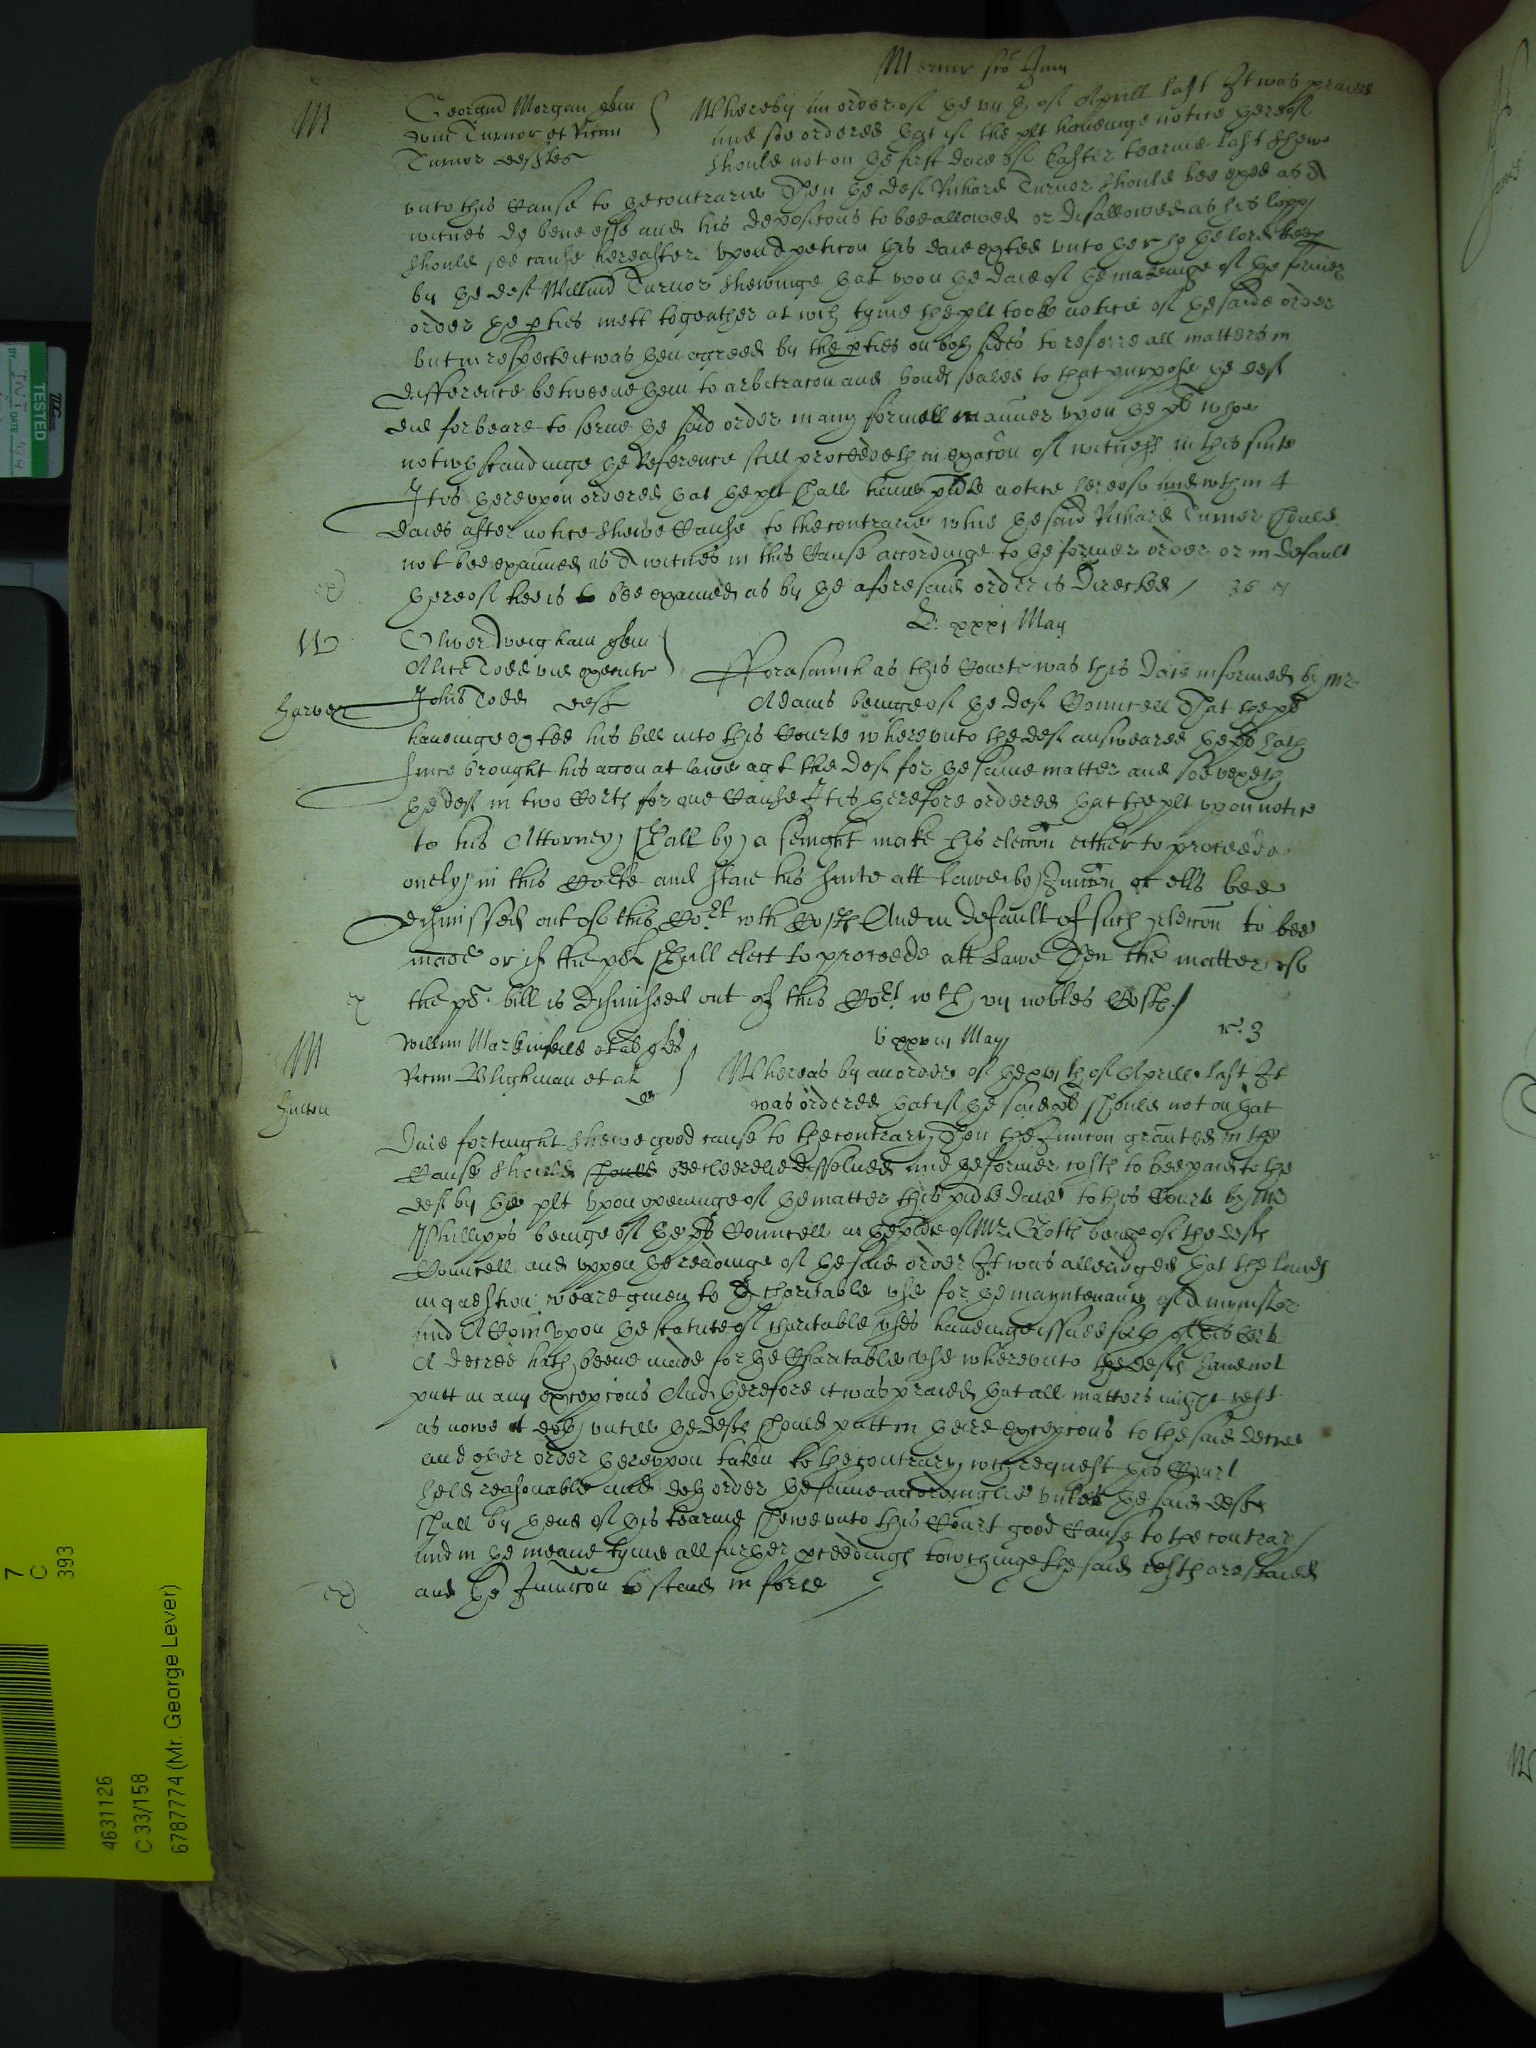 Mercur scdo Junii
M
Georgiu Morgan plen
Willm Turnor et Ricum
Turnor deftes
Whereby an order of the vijth of Aprill last It was praied
and soe ordered that if the plt haveinge notice thereof
should not on the first daie of Easter tearme last shewe
unto this Cause to the contrarie Then the deft Richard Turnor should bee exed as a
witnes de bene esse and his deposicons to bee allowed or disallowed as his lopp
should see cause hereafter upon a peticon this daie exted unto the right ho the lord keep
by the deft Willmd Turnor shewinge that upon the daie of the makeinge of the former
order the pties mett togeather at wch tyme the plt tooke notice of the saide order
but in respecte it was then agreed by the pties on both sides to referre all matters in
difference betweene them to arbitracon and bonds sealed to that purpose the deft
did forbeare to serve the said order in any formall manner upon the plt whoe
notwthstandinge the Reference still proceedeth in exacon of witnesses in this suite
It is thereupon ordered that the plt shall have pnte notice hereof and wthin 4
daies after notice shewe Cause to the contrarie whie the said Richard Turner should
not bee examined as a witnes in this Cause accordinge to the former order or in default
thereof hee is to bee examined as by the aforesaid order is Directed / 36
L: xxxj May
W
Oliver plen
Alice Todd vid executr
John Todd deft
Harvey
Fforasmuch as this Courte was this Daie informed by Mr
Adams beinge of the deft Councell That the plt
haveinge exted his bill into this Courte whereunto the deft answeared the plt hath
since brought his accon at lawe agt the deft for the same matter and soe vexeth
the deft in two Corts for one Cause It is therefore ordered that the plt upon notice
to his Attorney shall by a senight make his eleccon either to proceede
onely in this Corte and staie his suite att lawe by Juncon or ells bee
dismissed out of this Cort wth Costs And in default of such eleccon to bee
made or if the plt shall elect to proceede att Lawe Then the matter of
the plts bill is dismissed out of this Cort wth vij nobles Costs /
ex
V xxviij May
rr: 3
M
Willim Markinfeild et al ples
Ricum Blighman et al
def
Whereas by an order of the xvjth of Aprill last It
was ordered that if the said plt should not on that
daie fortnight shewe good cause to the contrary Then the Juncon graunted in the
Cause should should bee cleerelie dissolved and the former costs to bee paid to the
deft by the plt upon openinge of the matter this pnte daie to this Court by Mr
Phillipps beinge of the plts Councell in the pnce of Mr beinge of the defts
Councell and uppon the readinge of the said order It was alleidged that the lands
in question weare given to a charitable use for the mayntenance of a mynister
and A Comn upon the statute of charitable uses haveinge issued forth of this Cort
A decree hath beene made for the Charitable use whereunto the defts have not
putt in any excepcons And therefore it was praied that all matters might rest
as nowe it doth untill the defts should putt in their excepcons to the said decree
and other order thereupon taken to the contrary wch request this Court
held reasonable and doth order the same accordinglie unles the said defts
shall by thend of this tearme shewe unto this Court good Cause to the contrary
and in the meane tyme all further pceedings towchinge the said costs are staied
and the Juncon to stand in force /
TESTED
DATE
7
C
393
4631126
C 33/158
6787774 (Mr. George Lever)